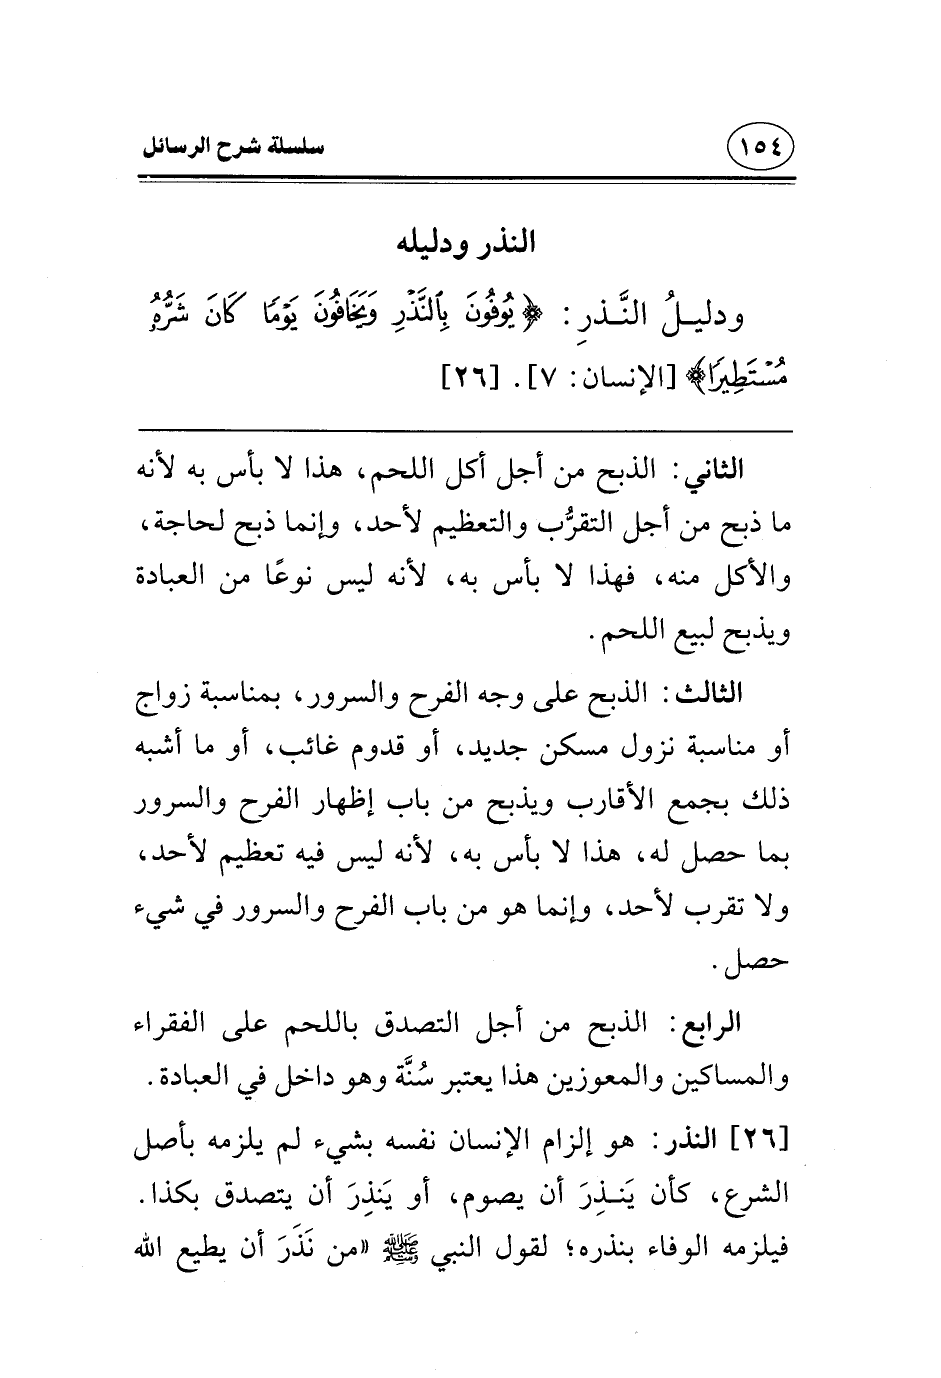 ١٥٤ سلسلة شرح الرسائل
النذر ودليله
ودليـلُ النَّـذرِ: ﴿يُوفُونَ بِٱلنَّذْرِ وَيَخَافُونَ يَوْمًا كَانَ شَرُّهُۥ
مُسْتَطِيرًا﴾ [الإنسان: ٧]. [٢٦]
الثاني: الذبح من أجل أكل اللحم، هذا لا بأس به لأنه
ما ذبح من أجل التقرُّب والتعظيم لأحد، وإنما ذبح لحاجة،
والأكل منه، فهذا لا بأس به، لأنه ليس نوعًا من العبادة
ويذبح لبيع اللحم.
الثالث: الذبح على وجه الفرح والسرور، بمناسبة زواج
أو مناسبة نزول مسكن جديد، أو قدوم غائب، أو ما أشبه
ذلك بجمع الأقارب ويذبح من باب إظهار الفرح والسرور
بما حصل له، هذا لا بأس به، لأنه ليس فيه تعظيم لأحد،
ولا تقرب لأحد، وإنما هو من باب الفرح والسرور في شيء
حصل.
الرابع: الذبح من أجل التصدق باللحم على الفقراء
والمساكين والمعوزين هذا يعتبر سُنَّة وهو داخل في العبادة.
[٢٦] النذر: هو إلزام الإنسان نفسه بشيء لم يلزمه بأصل
الشرع، كأن يَنـذِرَ أن يصوم، أو يَنذِرَ أن يتصدق بكذا.
فيلزمه الوفاء بنذره؛ لقول النبي ﷺ «من نَذَرَ أن يطيع الله